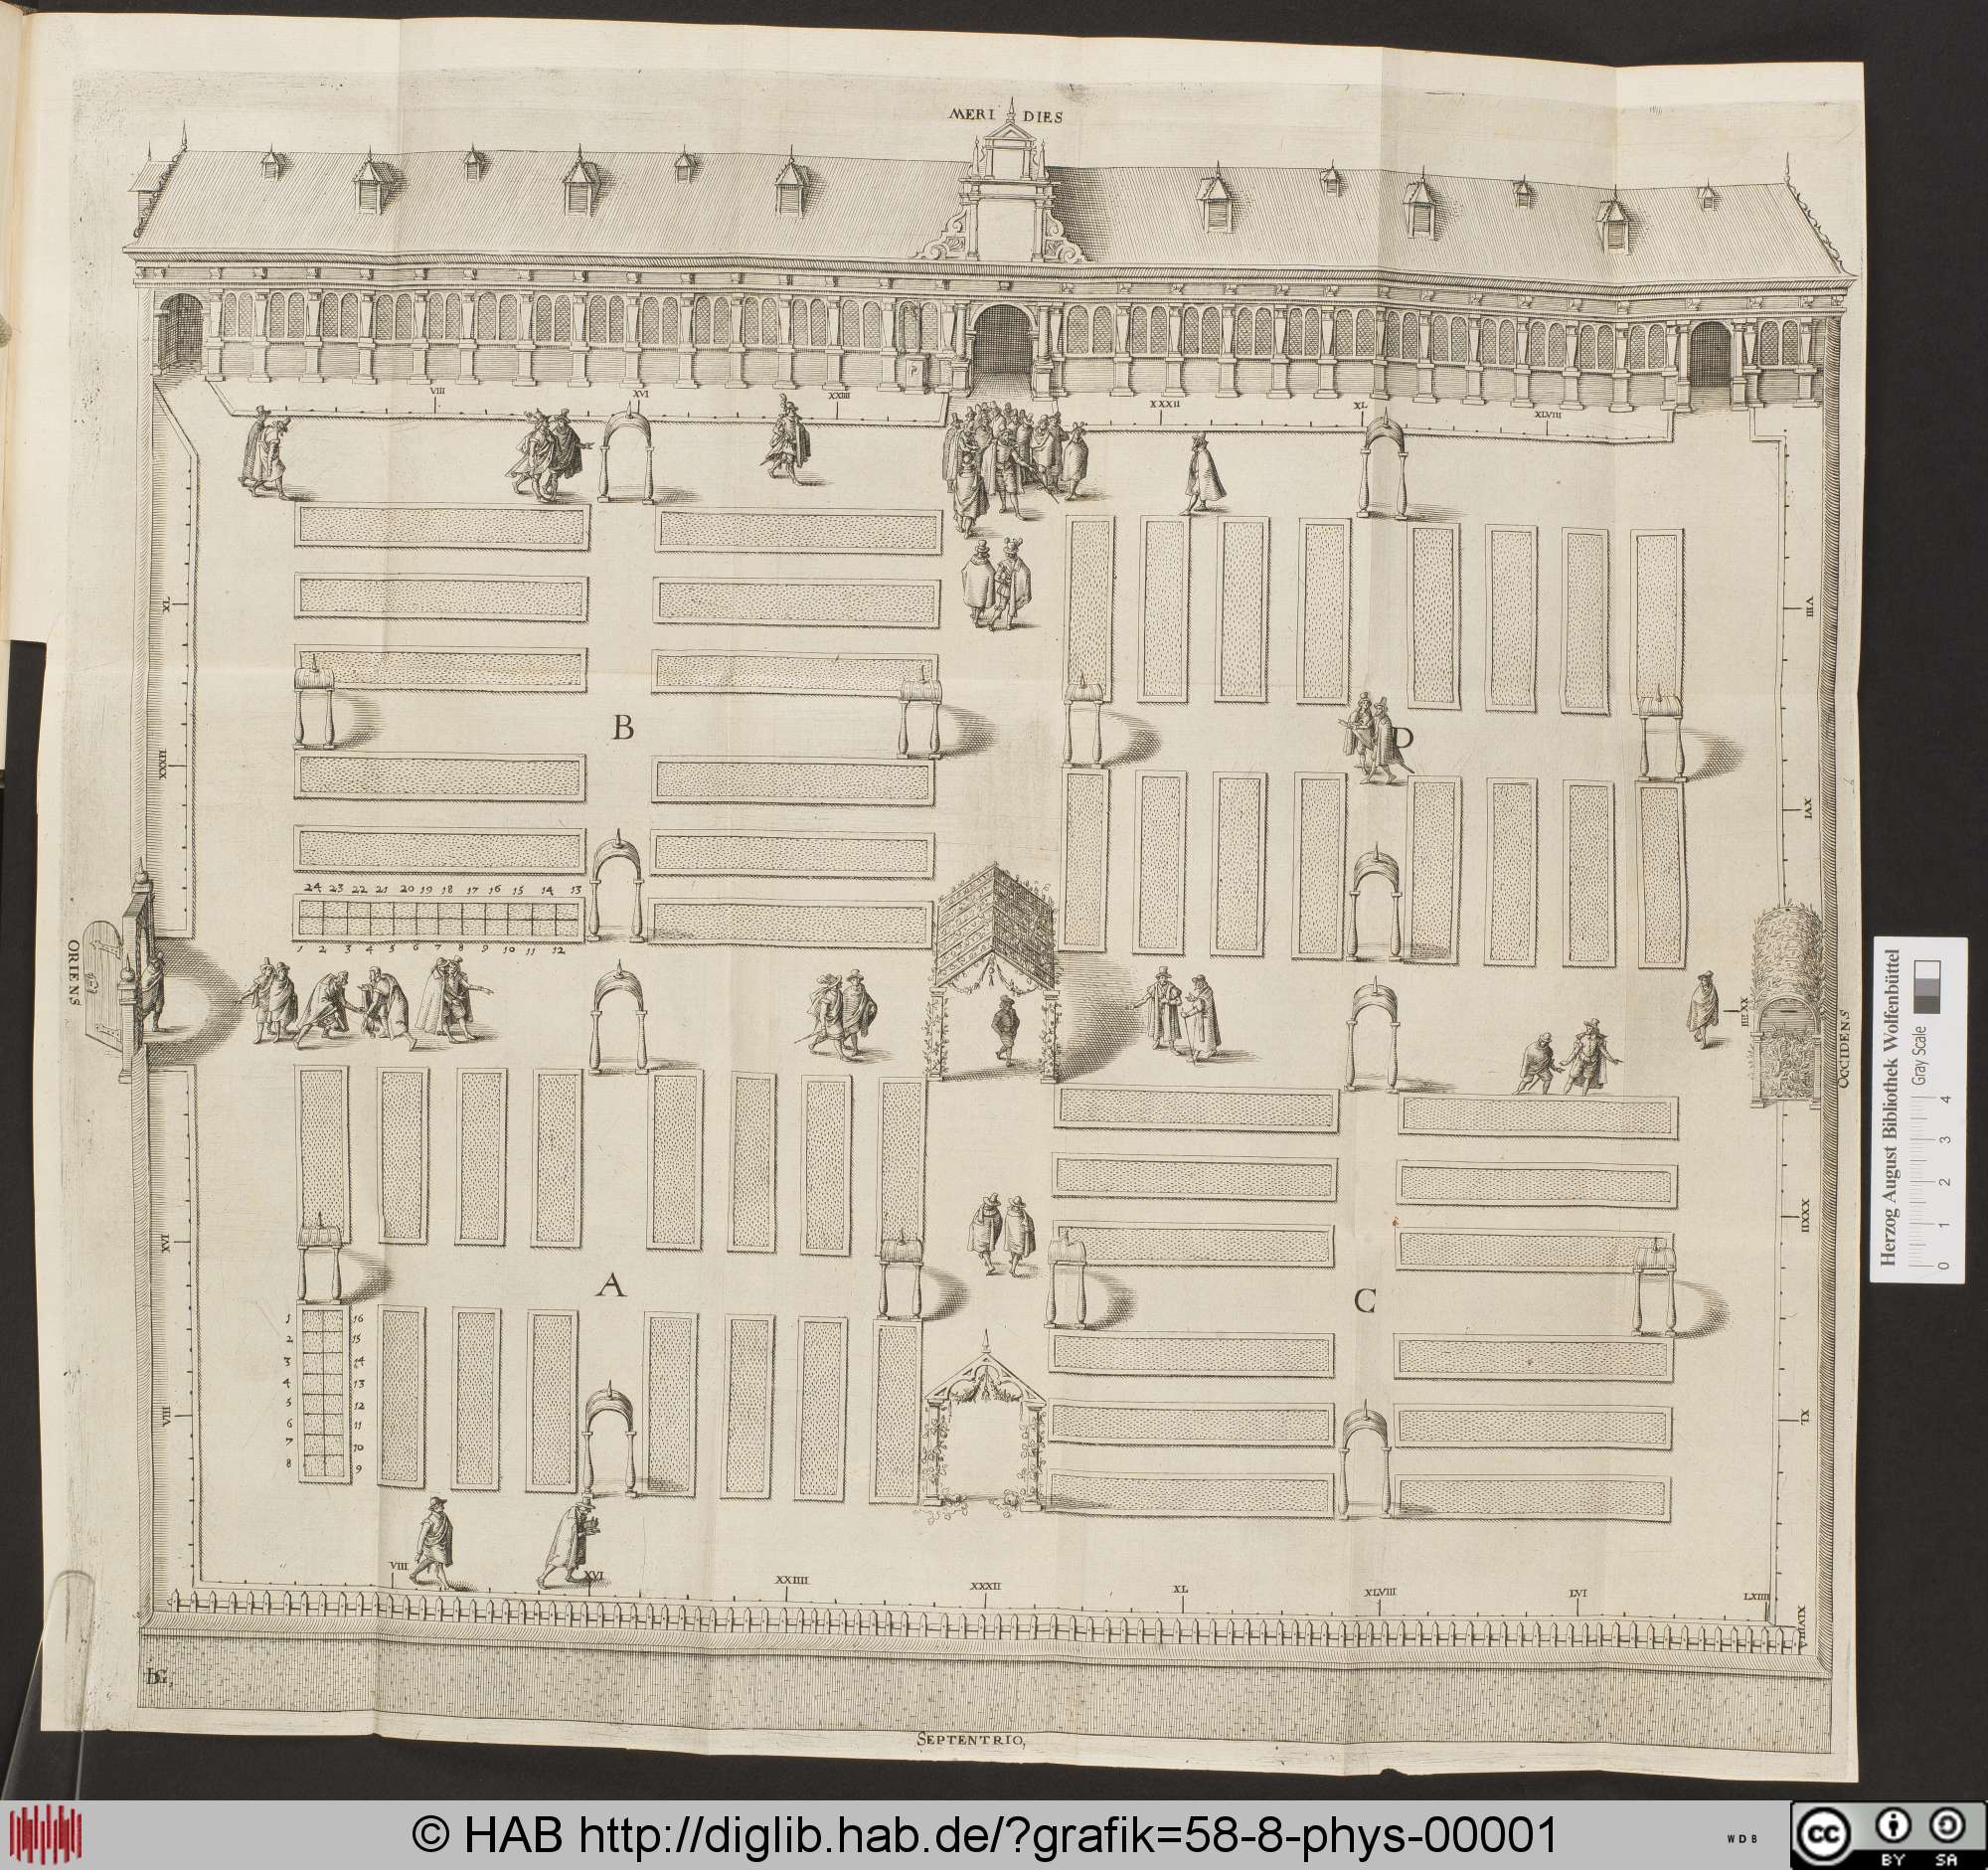 MERI DIES
VIII
XVI
XXIIII
XXXII
XL
XLVIII
XL
XXXII
XVI
VIII
VIII
XVI
XXIIII
XXXII
XL
XLVIII
B
D
24 23 22 21 20 19 18 17 16 15 14 13
1 2 3 4 5 6 7 8 9 10 11 12
ORIENS
OCCIDENS
A
C
1 16
2 15
3 14
4 13
5 12
6 11
7 10
8 9
VIII
XVI
XXIIII
XXXII
XL
XLVIII
LVI
LXIIII
SEPTENTRIO,
Herzog August Bibliothek Wolfenbüttel
Gray Scale
0 1 2 3 4
© HAB http://diglib.hab.de/?grafik=58-8-phys-00001
WDB
cc
BY SA